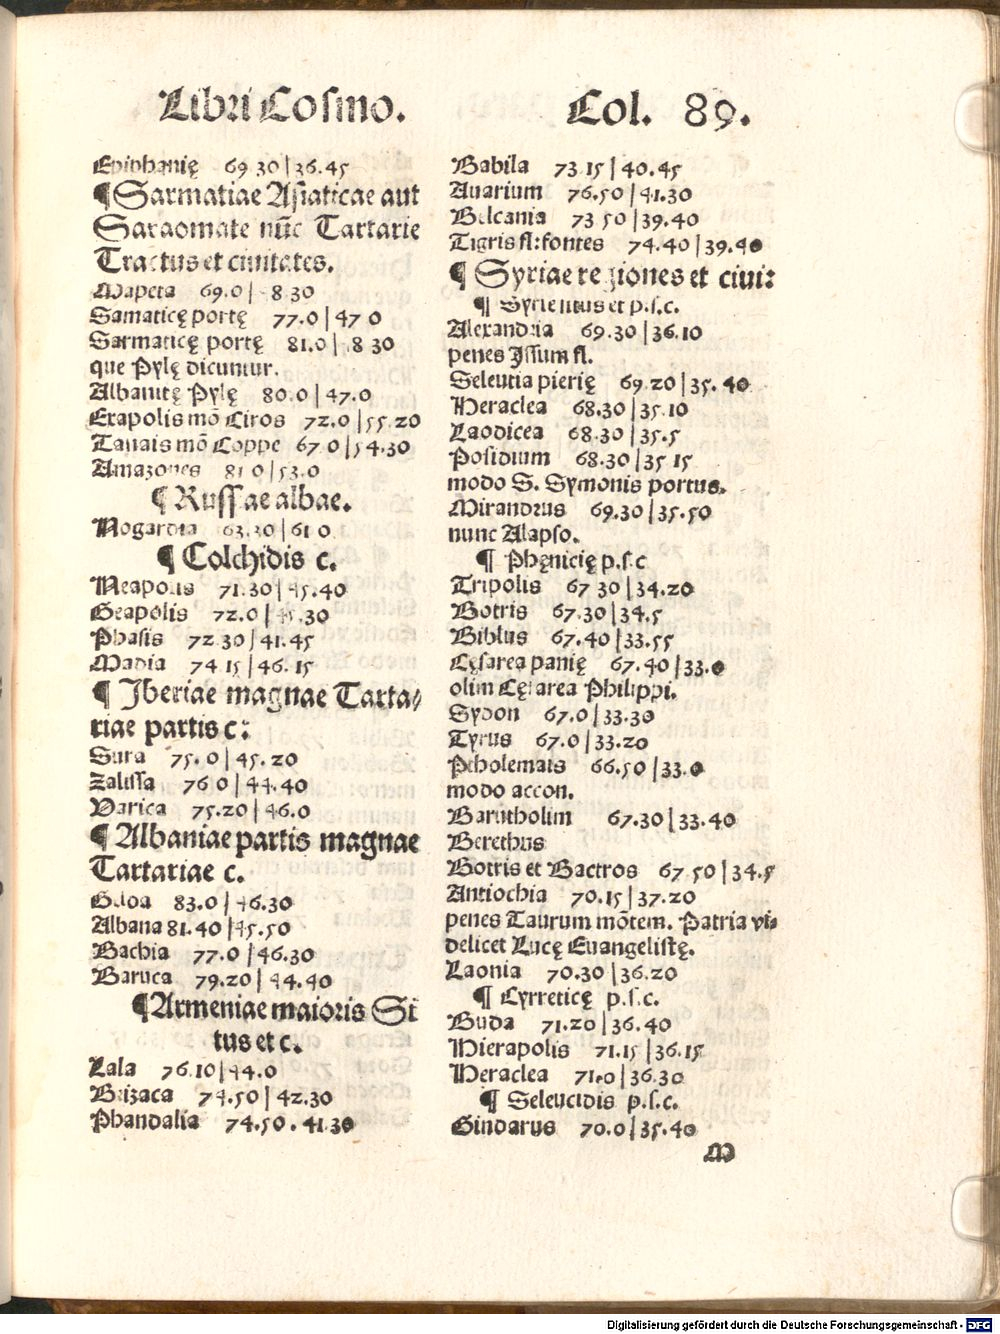 Libri Cosmo. Col. 89.
Epiphanię 69 30|36.45
¶ Sarmatiae Asiaticae aut
Saraomate nūc Tartarie
Tractus et ciuitates.
Mapeta 69.0| 8 30
Samaticę portę 77.0|47 0
Sarmaticę portę 81.0| 8 30
que Pylę dicuntur.
Albanitę Pylę 80.0|47.0
Exapolis mō Ciros 72.0|55.20
Tanais mō Coppe 67 0|54.30
Amazones 81 0|53.0
¶ Russae albae.
Nogardia 63.30|61 0
¶ Colchidis c.
Neapolis 71.30|45.40
Geapolis 72.0|45.30
Phasis 72 30|41.45
Madia 74 15|46.15
¶ Iberiae magnae Tarta/
riae partis c:
Sura 75.0|45.20
Zalissa 76 0|44.40
Varica 75.20|46.0
¶ Albaniae partis magnae
Tartariae c.
Geloa 83.0|46.30
Albana 81.40|45.50
Bachia 77.0|46.30
Baruca 79.20|44.40
¶ Armeniae maioris Si
tus et c.
Lala 76.10|44.0
Brizaca 74.50|42.30
Phandalia 74.50.41 30
Babila 73 15|40.45
Auarium 76.50|41.30
Belcania 73 50|39.40
Tigris fl: fontes 74.40|39.40
¶ Syriae regiones et ciui:
¶ Syrie situs et p.s.c.
Alexandria 69.30|36.10
penes Issum fl.
Seleutia pierię 69.20|35.40
Heraclea 68.30|35.10
Laodicea 68.30|35.5
Posidium 68.30|35 15
modo S. Symonis portus.
Mirandrus 69.30|35.50
nunc Alapso.
¶ Phęnicię p.s.c
Tripolis 67 30|34.20
Botris 67.30|34.5
Biblus 67.40|33.55
Cęsarea panię 67.40|33.0
olim Cęsarea Philippi.
Sydon 67.0|33.30
Tyrus 67.0|33.20
Ptholemais 66.50|33.0
modo accon.
Barutholim 67.30|33.40
Berethus
Botris et Bactros 67 50|34.5
Antiochia 70.15|37.20
penes Taurum mōtem. Patria vi⸗
delicet Lucę Euangelistę.
Laonia 70.30|36.20
¶ Cyrreticę p.s.c.
Buda 71.20|36.40
Hierapolis 71.15|36.15
Heraclea 71.0|36.30
¶ Seleucidis p.s.c.
Gindarus 70.0|35.40
M
Digitalisierung gefördert durch die Deutsche Forschungsgemeinschaft - DFG